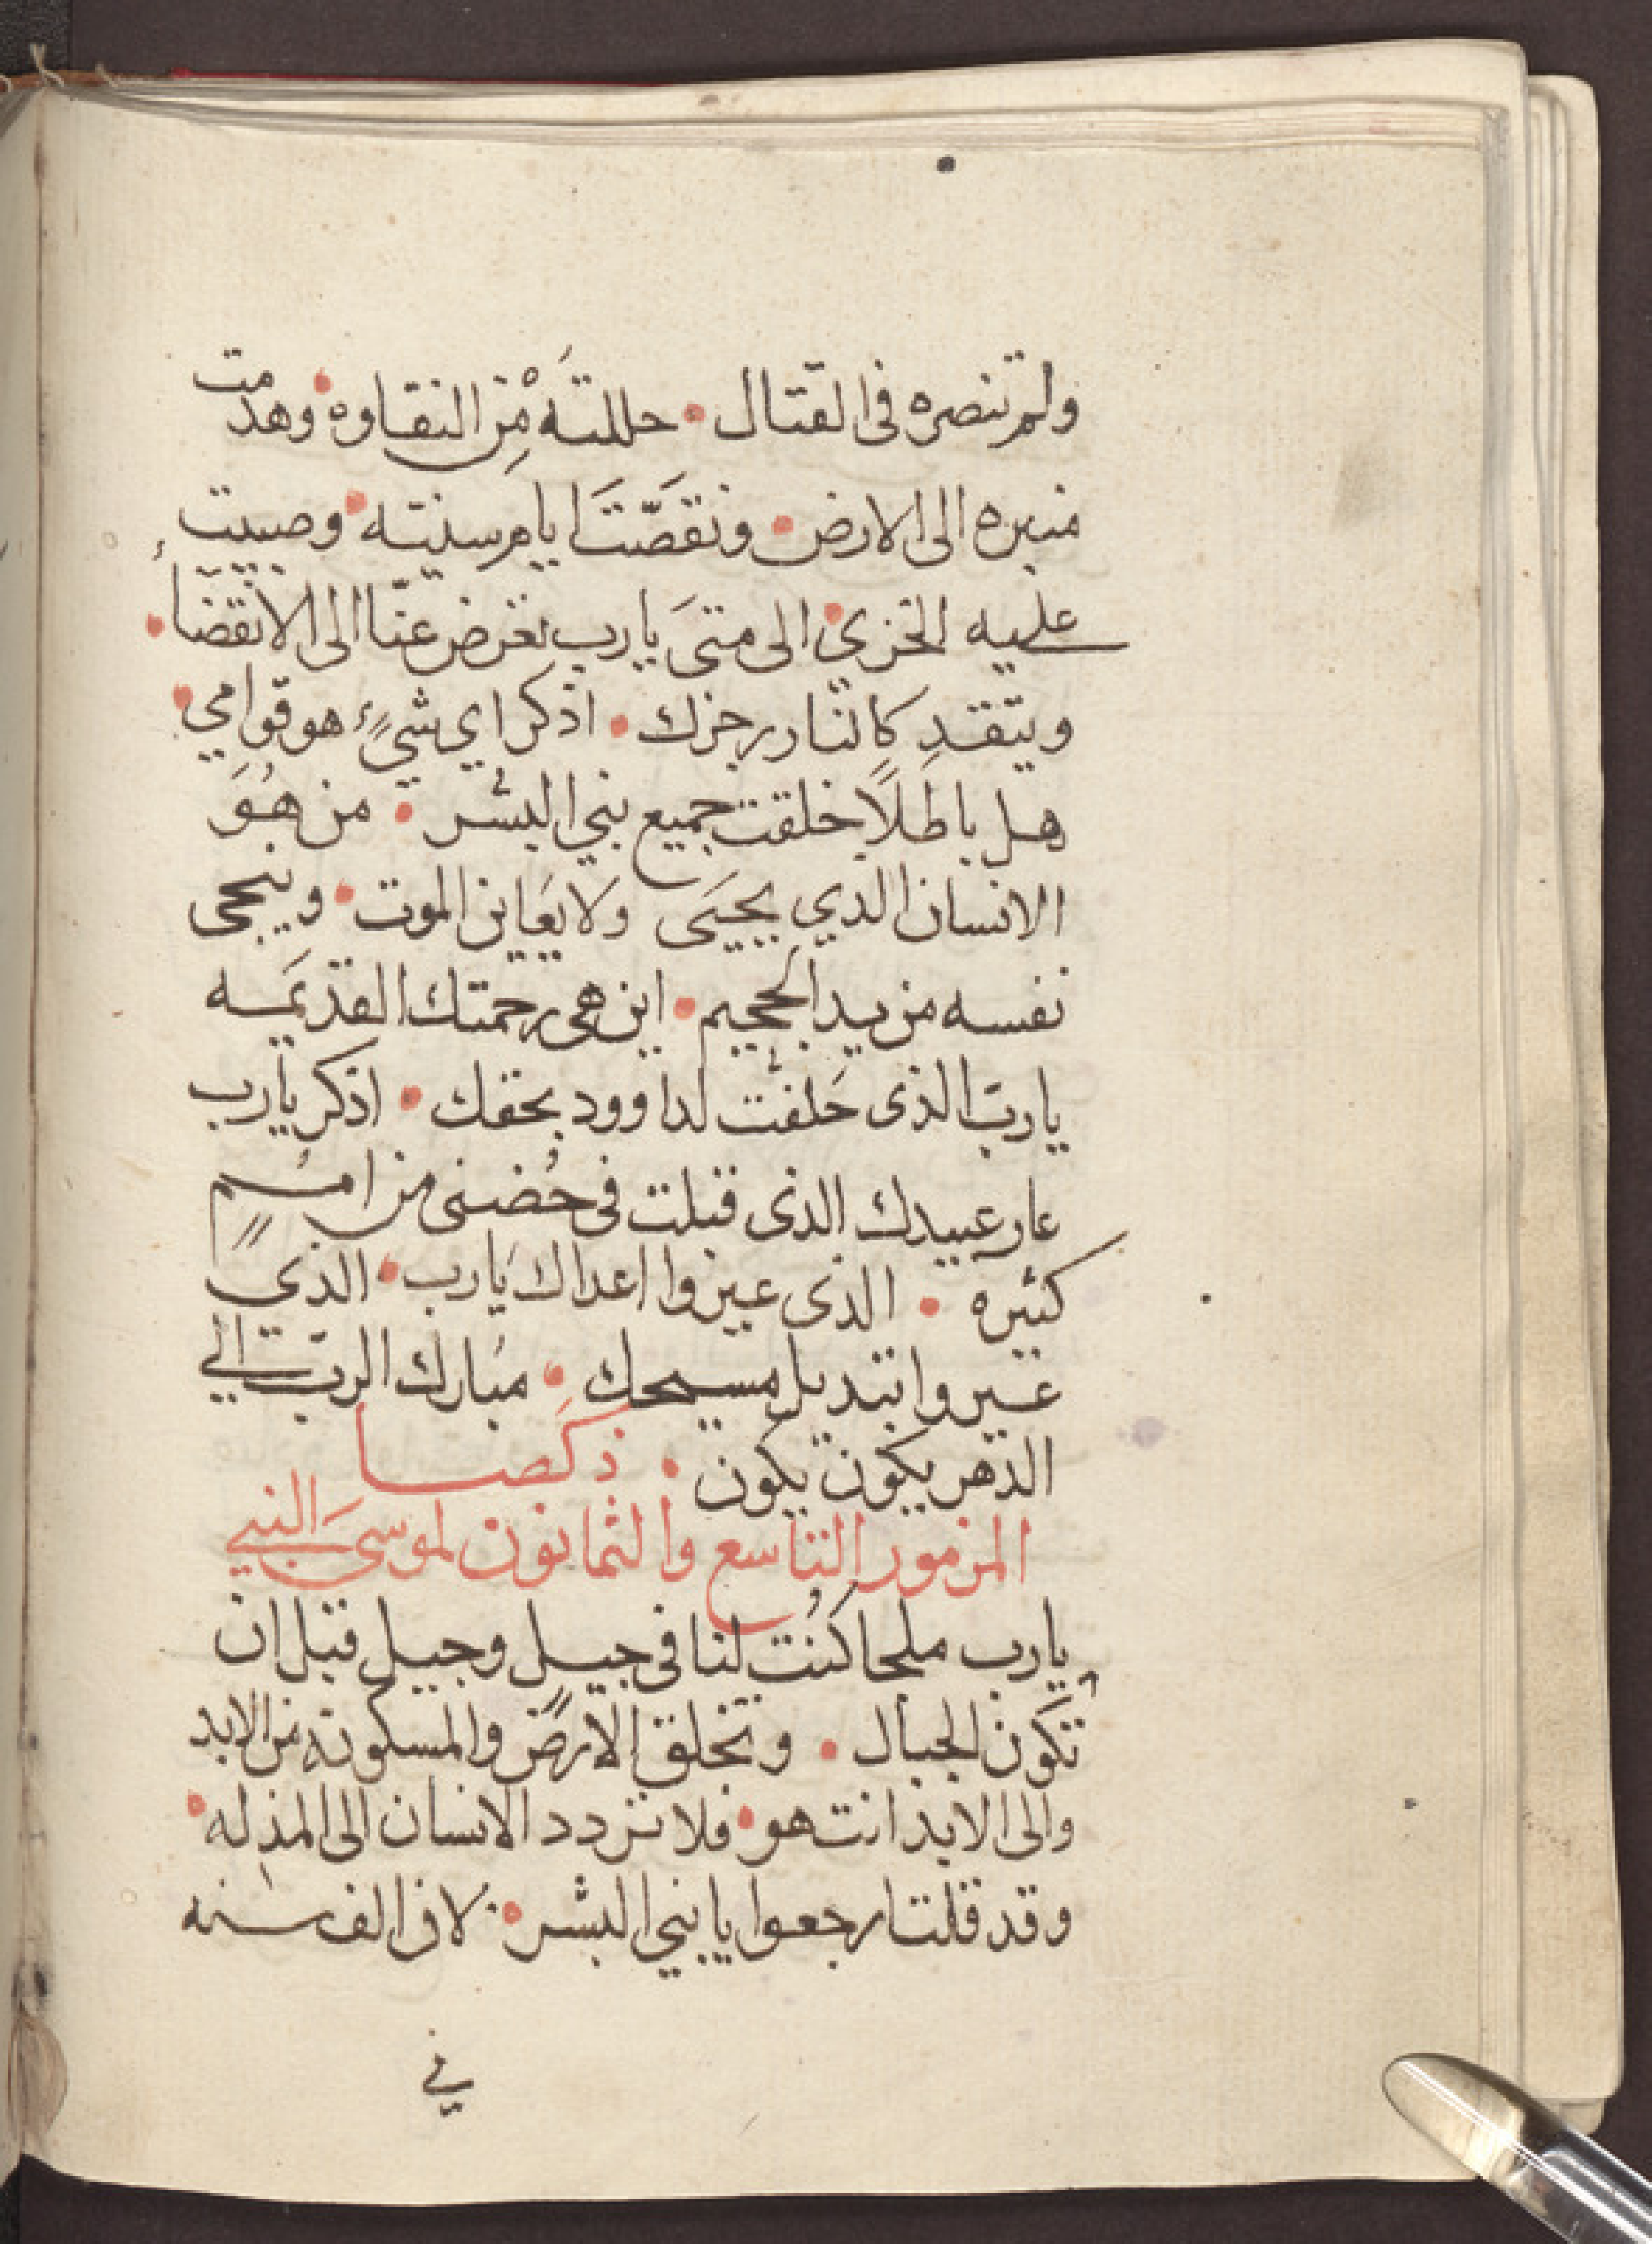 ولم تنصره في القتال • حللتَه مِنْ النقاوه • وهدمت
منبره الى الارض • ونقصّتَ ايام سنيته • وصببت
عليه الخزي • الى متىَ يا رب تعرض عنّا الى الانقضاء •
ويتقد كالنار رجزك • اذكر اي شيءٍ هو قوامي •
هل باطلًا خلقت جميع بني البشر • من هُوَ
الانسان الدي يحييَى ولا يعَاين الموت • وينجى
نفسه من يد الجحيم • اين هى رحمتك القديمَه
يا ربّ الذى حَلفت لداوود بحقك • اذكر يا رب
عار عبيدك الذى قبلت فى حُضنى من اممٍ
كثيره • الذى عيروا اعداك يَا رب • الذي
عيروا بتديل مسيحك • مبُارك الربّ الي
الدهر يكون يكون • ذكصا
المزمور التاسع والثمانون لموسىَ النبي
يا رب ملجا كنُت لنا فى جيل وجيل قبل ان
تكَون الجبال • وتخلق الارض والمسكونه من الابد
والى الابد انت هو • فلا تردد الانسان الى المذله •
وقد قلت ارجعوا يا بني البشر • لان الف سنه
في